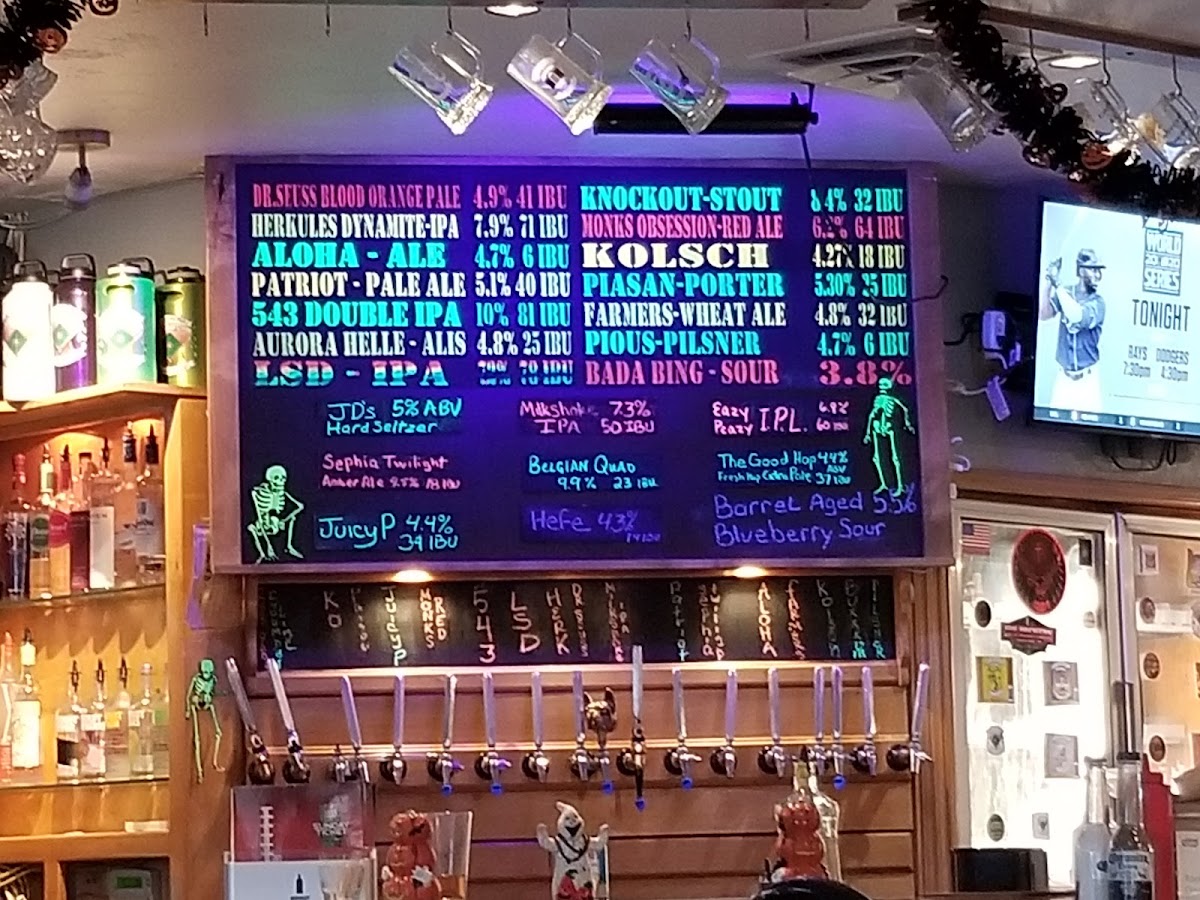 DR.SEUSS BLOOD ORANGE PALE 4.9% 41 IBU
HERKULES DYNAMITE-IPA 7.9% 71 IBU
ALOHA - ALE 4.7% 6 IBU
PATRIOT - PALE ALE 5.1% 40 IBU
543 DOUBLE IPA 10% 81 IBU
AURORA HELLE - ALIS 4.8% 25 IBU
LSD - IPA 78 IBU
KNOCKOUT-STOUT 4% 32 IBU
MONKS OBSESSION-RED ALE 6.2% 64 IBU
KOLSCH 4.27% 18 IBU
PIASAN-PORTER 5.30% 25 IBU
FARMERS-WHEAT ALE 4.8% 32 IBU
PIOUS-PILSNER 4.7% 6 IBU
BADA BING - SOUR 3.8%
JD's 5% ABV
Hard Seltzer
Milkshake 7.3%
IPA 50 IBU
Eazy
Peazy I.P.L. 6.8%
60 IBU
Sephia Twilight
Amber Ale
BELGIAN QUAD
9.9% 23 IBU
The Good Hop 4.4%
ABV
Fresh Hop Extra Pale 37 IBU
JuicyP 4.4%
39 IBU
HeFe 4.3%
14 IBU
Barrel Aged 5.5%
Blueberry Sour
KO
JuicyP
MONKS
RED
543
LSD
HERK
Patriot
ALOHA
FARMERS
WORLD
SERIES
TONIGHT
RAYS DODGERS
7:30pm 4:30pm